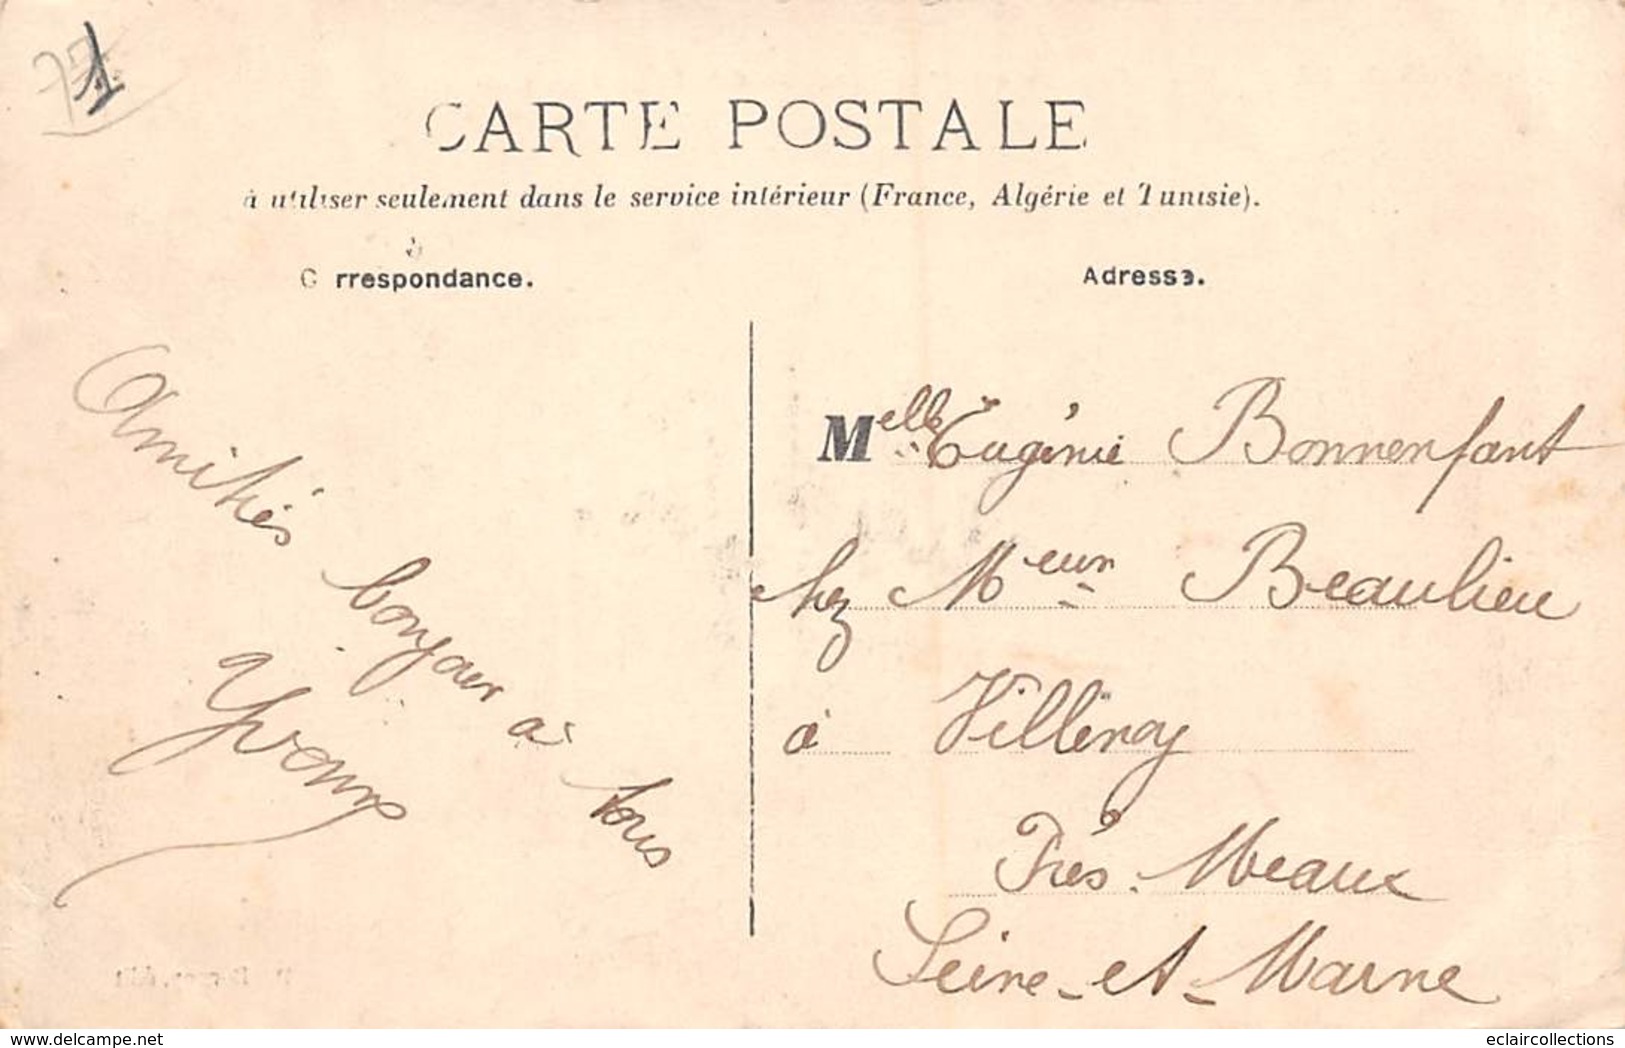 CARTE POSTALE
à utiliser seulement dans le service intérieur (France, Algérie et Tunisie).
Correspondance.
Adresse.
Amitiés bonjour à tous
Yvonne
Melle Eugénie Bonnenfant
chez Meur Beaulieu
à Villeroy
Près Meaux
Seine-et-Marne
www.delcampe.net
eclaircollections